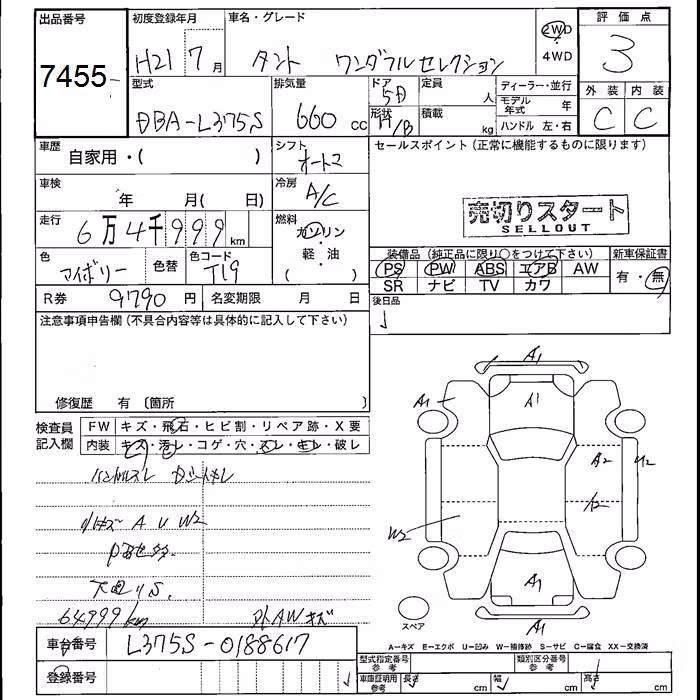 出品番号 初度登録年月 車名・グレード 評価点
7455 H21 7月 タント ワンダフルセレクション 2WD・4WD 3
型式 排気量 ドア 定員 ディーラー・並行 外装 内装
DBA-L375S 660cc 5D 人 モデル年式 年 C C
形状 H/B 積載 kg ハンドル 左・右
車歴 自家用・( ) シフト オートマ セールスポイント(正常に機能するものに限ります)
車検 年 月( 日) 冷房 A/C
売切りスタート
SELLOUT
走行 6万4千999km 燃料 ガソリン・軽・油( )
装備品(純正品に限り○をつけて下さい) 新車保証書
色 アイボリー 色替 色コード T19
PS PW ABS エアB AW 有・無
SR ナビ TV カワ
R券 9790円 名変期限 月 日 後日品
注意事項申告欄(不具合内容等は具体的に記入して下さい)
修復歴 有 〔箇所 〕
検査員記入欄 FW キズ・飛石・ヒビ割・リペア跡・X要
内装 キズ・汚レ・コゲ・穴・スレ・キレ・破レ
ハンドルスレ
A U W2
64999km 外AWキズ
A1
A1 A1
A2 U2
W2
A1
A1
スペア
A-キズ E-エクボ U-凹み W-補修跡 S-サビ C-腐食 XX-交換済
車台番号 L375S-0188617
登録番号
型式指定番号 参考 類別区分番号 参考
車庫証明用 参考 長さ cm 幅 cm 高さ cm